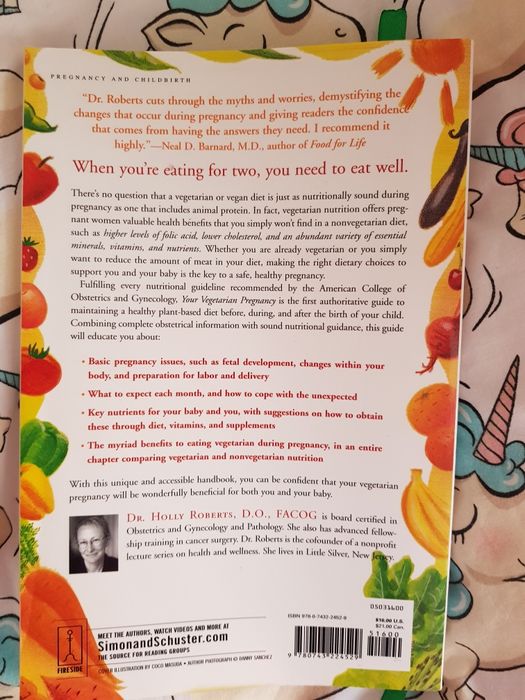 PREGNANCY AND CHILDBIRTH
"Dr. Roberts cuts through the myths and worries, demystifying the
changes that occur during pregnancy and giving readers the confidence
that comes from having the answers they need. I recommend it
highly."—Neal D. Barnard, M.D., author of Food for Life
When you're eating for two, you need to eat well.
There's no question that a vegetarian or vegan diet is just as nutritionally sound during
pregnancy as one that includes animal protein. In fact, vegetarian nutrition offers preg-
nant women valuable health benefits that you simply won't find in a nonvegetarian diet,
such as higher levels of folic acid, lower cholesterol, and an abundant variety of essential
minerals, vitamins, and nutrients. Whether you are already vegetarian or you simply
want to reduce the amount of meat in your diet, making the right dietary choices to
support you and your baby is the key to a safe, healthy pregnancy.
Fulfilling every nutritional guideline recommended by the American College of
Obstetrics and Gynecology, Your Vegetarian Pregnancy is the first authoritative guide to
maintaining a healthy plant-based diet before, during, and after the birth of your child.
Combining complete obstetrical information with sound nutritional guidance, this guide
will educate you about:
• Basic pregnancy issues, such as fetal development, changes within your
body, and preparation for labor and delivery
• What to expect each month, and how to cope with the unexpected
• Key nutrients for your baby and you, with suggestions on how to obtain
these through diet, vitamins, and supplements
• The myriad benefits to eating vegetarian during pregnancy, in an entire
chapter comparing vegetarian and nonvegetarian nutrition
With this unique and accessible handbook, you can be confident that your vegetarian
pregnancy will be wonderfully beneficial for both you and your baby.
DR. HOLLY ROBERTS, D.O., FACOG is board certified in
Obstetrics and Gynecology and Pathology. She also has advanced fellow-
ship training in cancer surgery. Dr. Roberts is the cofounder of a nonprofit
lecture series on health and wellness. She lives in Little Silver, New Jersey.
FIRESIDE
MEET THE AUTHORS, WATCH VIDEOS AND MORE AT
SimonandSchuster.com
THE SOURCE FOR READING GROUPS
COVER ILLUSTRATION BY COCO MASUDA • AUTHOR PHOTOGRAPH © DANNY SANCHEZ
ISBN 978-0-7432-2452-9
9 780743 224529
05031600
$16.00 U.S.
$21.00 Can.
51600